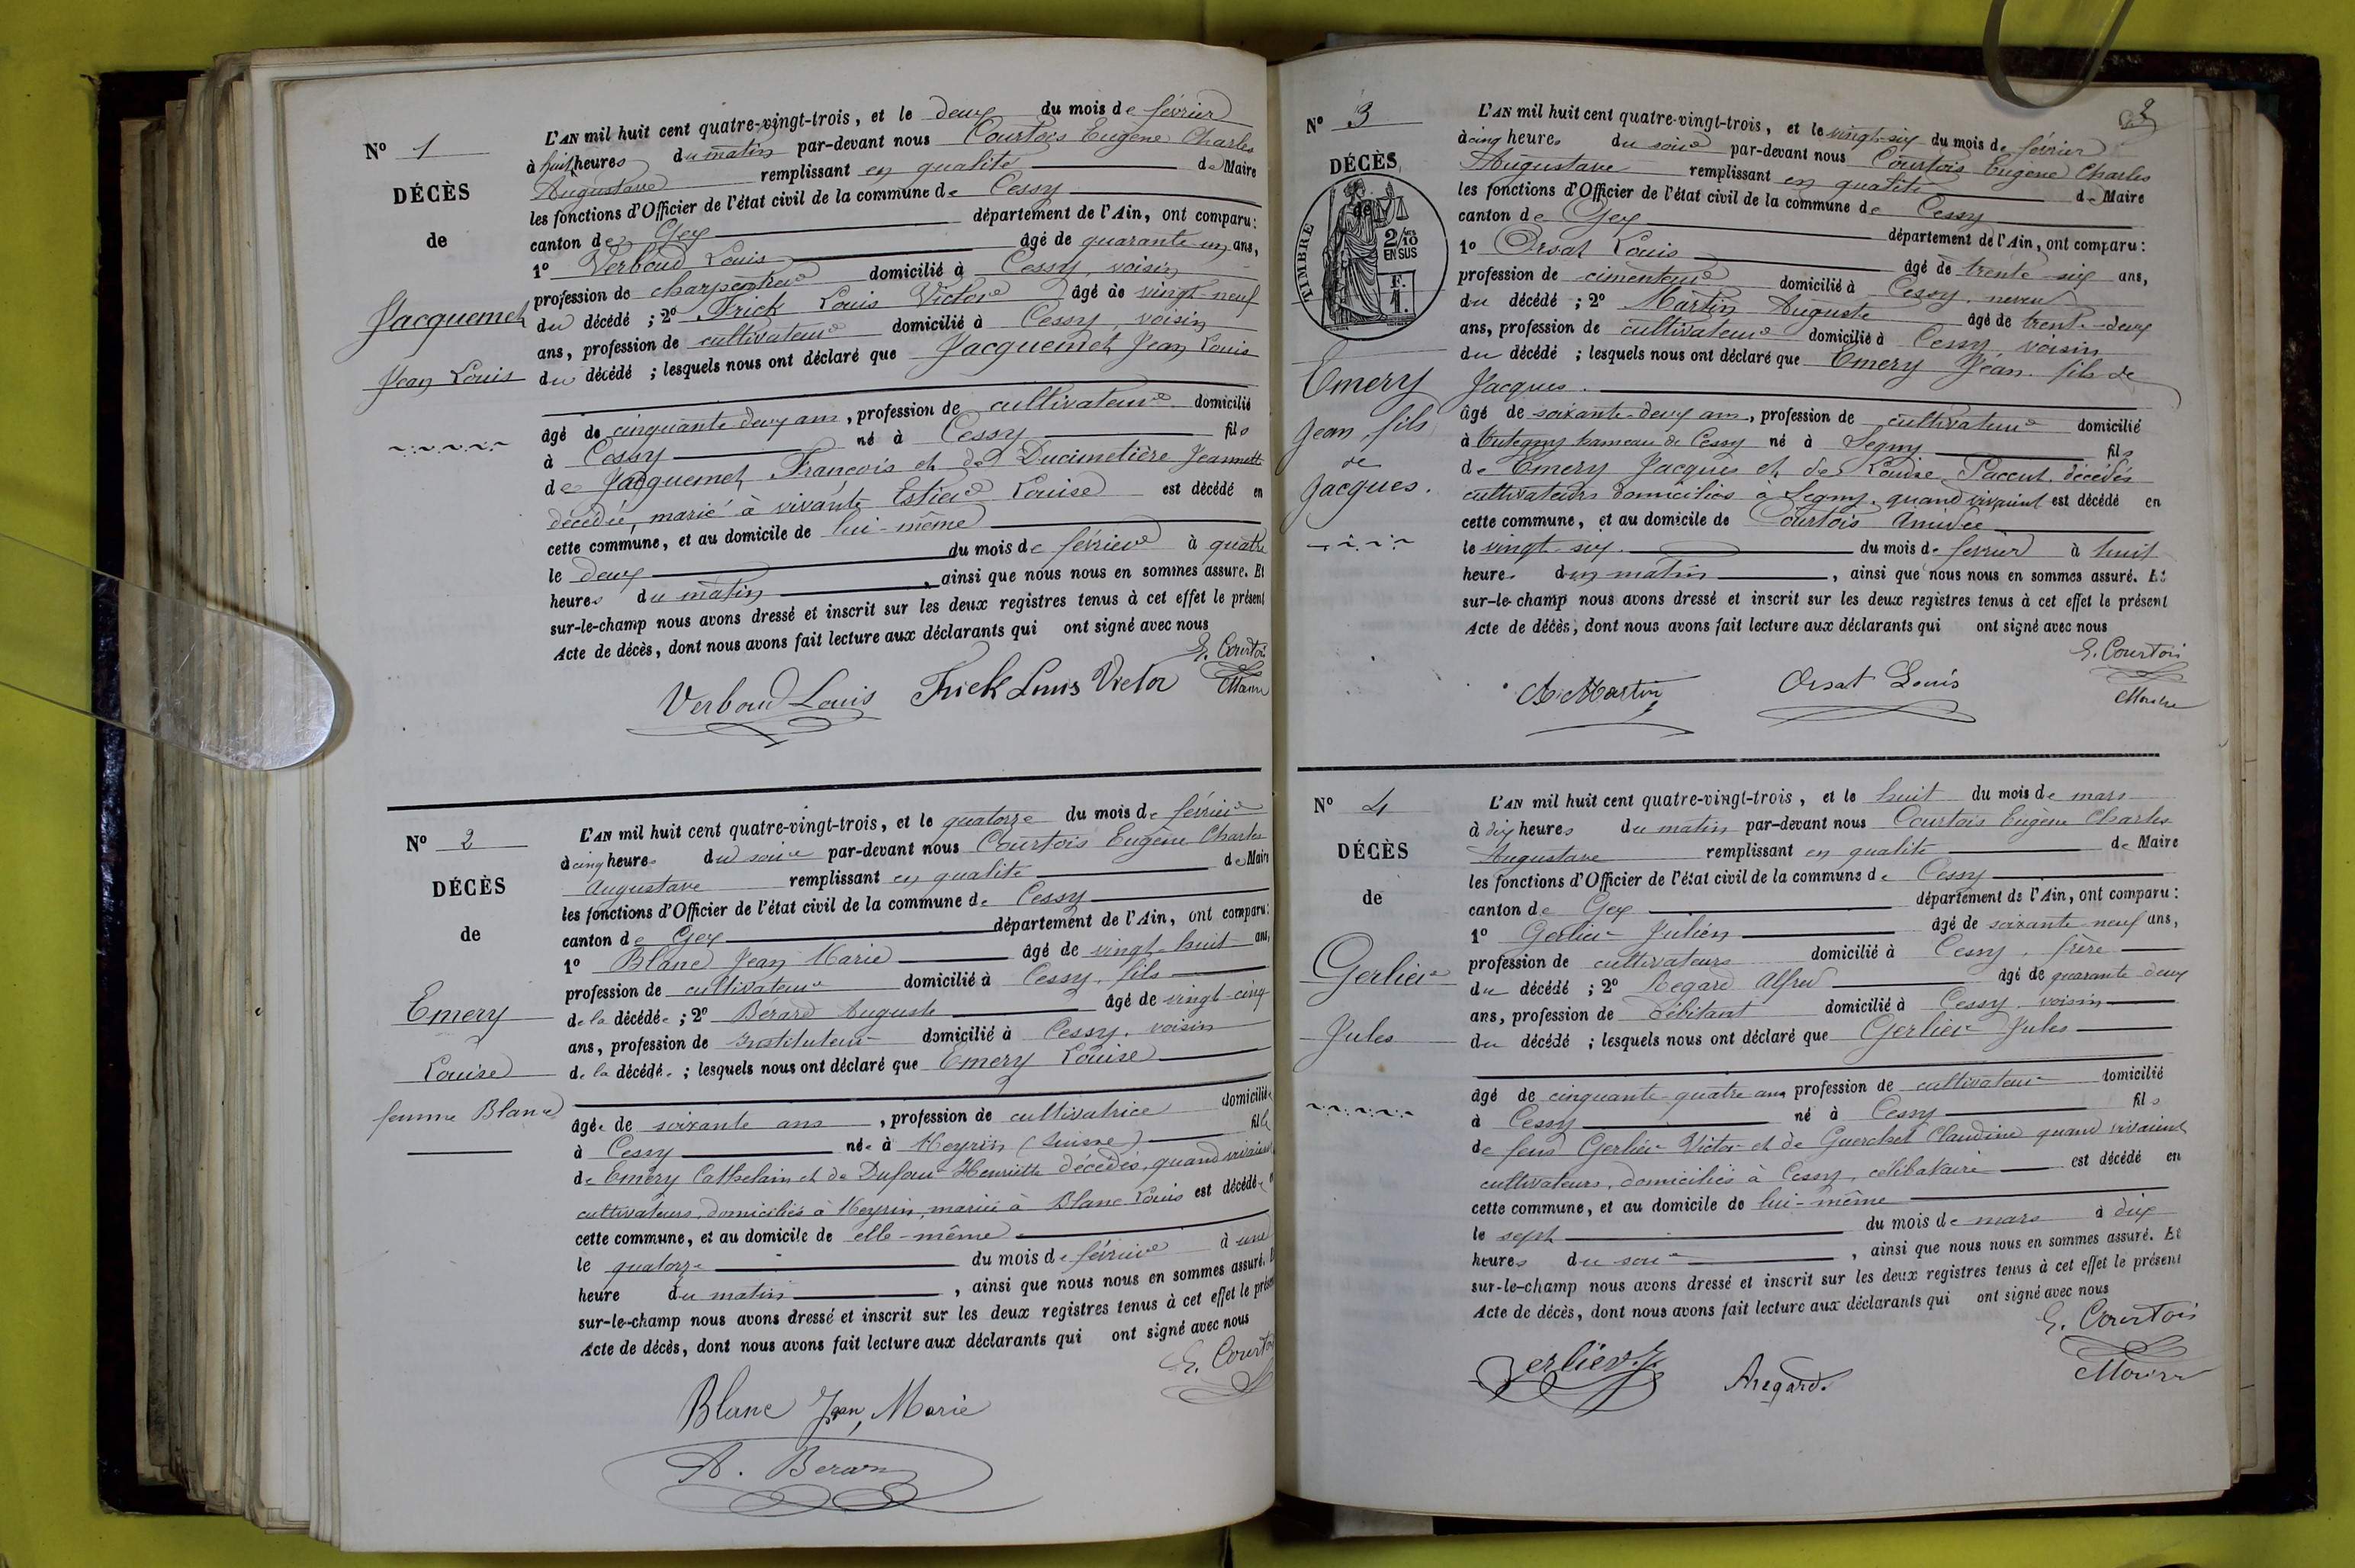 N° 1
DÉCÈS
de
Jacquemet
Jean Louis
L'AN mil huit cent quatre-vingt-trois, et le deux du mois de février
à huit heures du matin par-devant nous Courtois Eugène Charles
Augustave remplissant en qualité de Maire
les fonctions d'Officier de l'état civil de la commune de Cessy
canton de Gex département de l'Ain, ont comparu:
1° Verboud Louis âgé de quarante-un ans,
profession de charpentier domicilié à Cessy, voisin
du décédé ; 2° Frick Louis Victor âgé de vingt-neuf
ans, profession de cultivateur domicilié à Cessy, voisin
du décédé ; lesquels nous ont déclaré que Jacquemet Jean Louis
âgé de cinquante-deux ans, profession de cultivateur domicilié
à Cessy né à Cessy fils
de Jacquemet François et de Ducimetière Jeannette
décédée, marié à vivante Estier Louise est décédé en
cette commune, et au domicile de lui-même
le deux du mois de février à quatre
heures du matin, ainsi que nous nous en sommes assuré. Et
sur-le-champ nous avons dressé et inscrit sur les deux registres tenus à cet effet le présent
Acte de décès, dont nous avons fait lecture aux déclarants qui ont signé avec nous
E. Courtois
Maire
Verboud Louis Frick Louis Victor
N° 2
DÉCÈS
de
Emery
Louise
femme Blanc
L'AN mil huit cent quatre-vingt-trois, et le quatorze du mois de février
à cinq heures du soir par-devant nous Courtois Eugène Charles
Augustave remplissant en qualité de Maire
les fonctions d'Officier de l'état civil de la commune de Cessy
canton de Gex département de l'Ain, ont comparu:
1° Blanc Jean Marie âgé de vingt-huit ans,
profession de cultivateur domicilié à Cessy, fils
de la décédée ; 2° Bérard Auguste âgé de vingt-cinq
ans, profession de Instituteur domicilié à Cessy, voisin
de la décédée ; lesquels nous ont déclaré que Emery Louise
âgée de soixante ans, profession de cultivatrice domiciliée
à Cessy née à Meyrin (Suisse) fille
de Emery Cathelain et de Dufour Henriette décédés, quand vivaient
cultivateurs, domiciliés à Meyrin, mariée à Blanc Louis est décédée
cette commune, et au domicile de elle-même
le quatorze du mois de février à une
heure du matin, ainsi que nous nous en sommes assuré.
sur-le-champ nous avons dressé et inscrit sur les deux registres tenus à cet effet le présent
Acte de décès, dont nous avons fait lecture aux déclarants qui ont signé avec nous
E. Courtois
Blanc Jean Marie
A. Berard
2
N° 3
DÉCÈS
de
TIMBRE
2/10
EN SUS
F.
1.
Emery
Jean, fils
de
Jacques.
L'AN mil huit cent quatre-vingt-trois, et le vingt-six du mois de février
à cinq heures du soir par-devant nous Courtois Eugène Charles
Augustave remplissant en qualité de Maire
les fonctions d'Officier de l'état civil de la commune de Cessy
canton de Gex département de l'Ain, ont comparu:
1° Orsat Louis âgé de trente-six ans,
profession de cimenteur domicilié à Cessy, neveu
du décédé ; 2° Martin Auguste âgé de trente-deux
ans, profession de cultivateur domicilié à Cessy, voisin
du décédé ; lesquels nous ont déclaré que Emery Jean fils de
Jacques.
âgé de soixante-deux ans, profession de cultivateur domicilié
à Vutegny hameau de Cessy né à Segny fils
de Emery Jacques et de Louise Paccut, décédés
cultivateurs domiciliés à Segny, quand vivaient est décédé en
cette commune, et au domicile de Courtois Amidée
le vingt-six du mois de février à huit
heures du matin, ainsi que nous nous en sommes assuré. Et
sur-le-champ nous avons dressé et inscrit sur les deux registres tenus à cet effet le présent
Acte de décès, dont nous avons fait lecture aux déclarants qui ont signé avec nous
E. Courtois
A. Martin Orsat Louis
Maire
N° 4
DÉCÈS
de
Gerlier
Jules
L'AN mil huit cent quatre-vingt-trois, et le huit du mois de mars
à dix heures du matin par-devant nous Courtois Eugène Charles
Augustave remplissant en qualité de Maire
les fonctions d'Officier de l'état civil de la commune de Cessy
canton de Gex département de l'Ain, ont comparu:
1° Gerlier Julien âgé de soixante-neuf ans,
profession de cultivateurs domicilié à Cessy, frère
du décédé ; 2° Regard Alfred âgé de quarante-deux
ans, profession de Débitant domicilié à Cessy, voisin
du décédé ; lesquels nous ont déclaré que Gerlier Jules
âgé de cinquante-quatre ans profession de cultivateur domicilié
à Cessy né à Cessy fils
de feus Gerlier Victor et de Guerchet Claudine quand vivaient
cultivateurs, domiciliés à Cessy, célibataire est décédé en
cette commune, et au domicile de lui-même
le sept du mois de mars à dix
heures du soir, ainsi que nous nous en sommes assuré. Et
sur-le-champ nous avons dressé et inscrit sur les deux registres tenus à cet effet le présent
Acte de décès, dont nous avons fait lecture aux déclarants qui ont signé avec nous
E. Courtois
Gerlier. J. A regard.
Maire